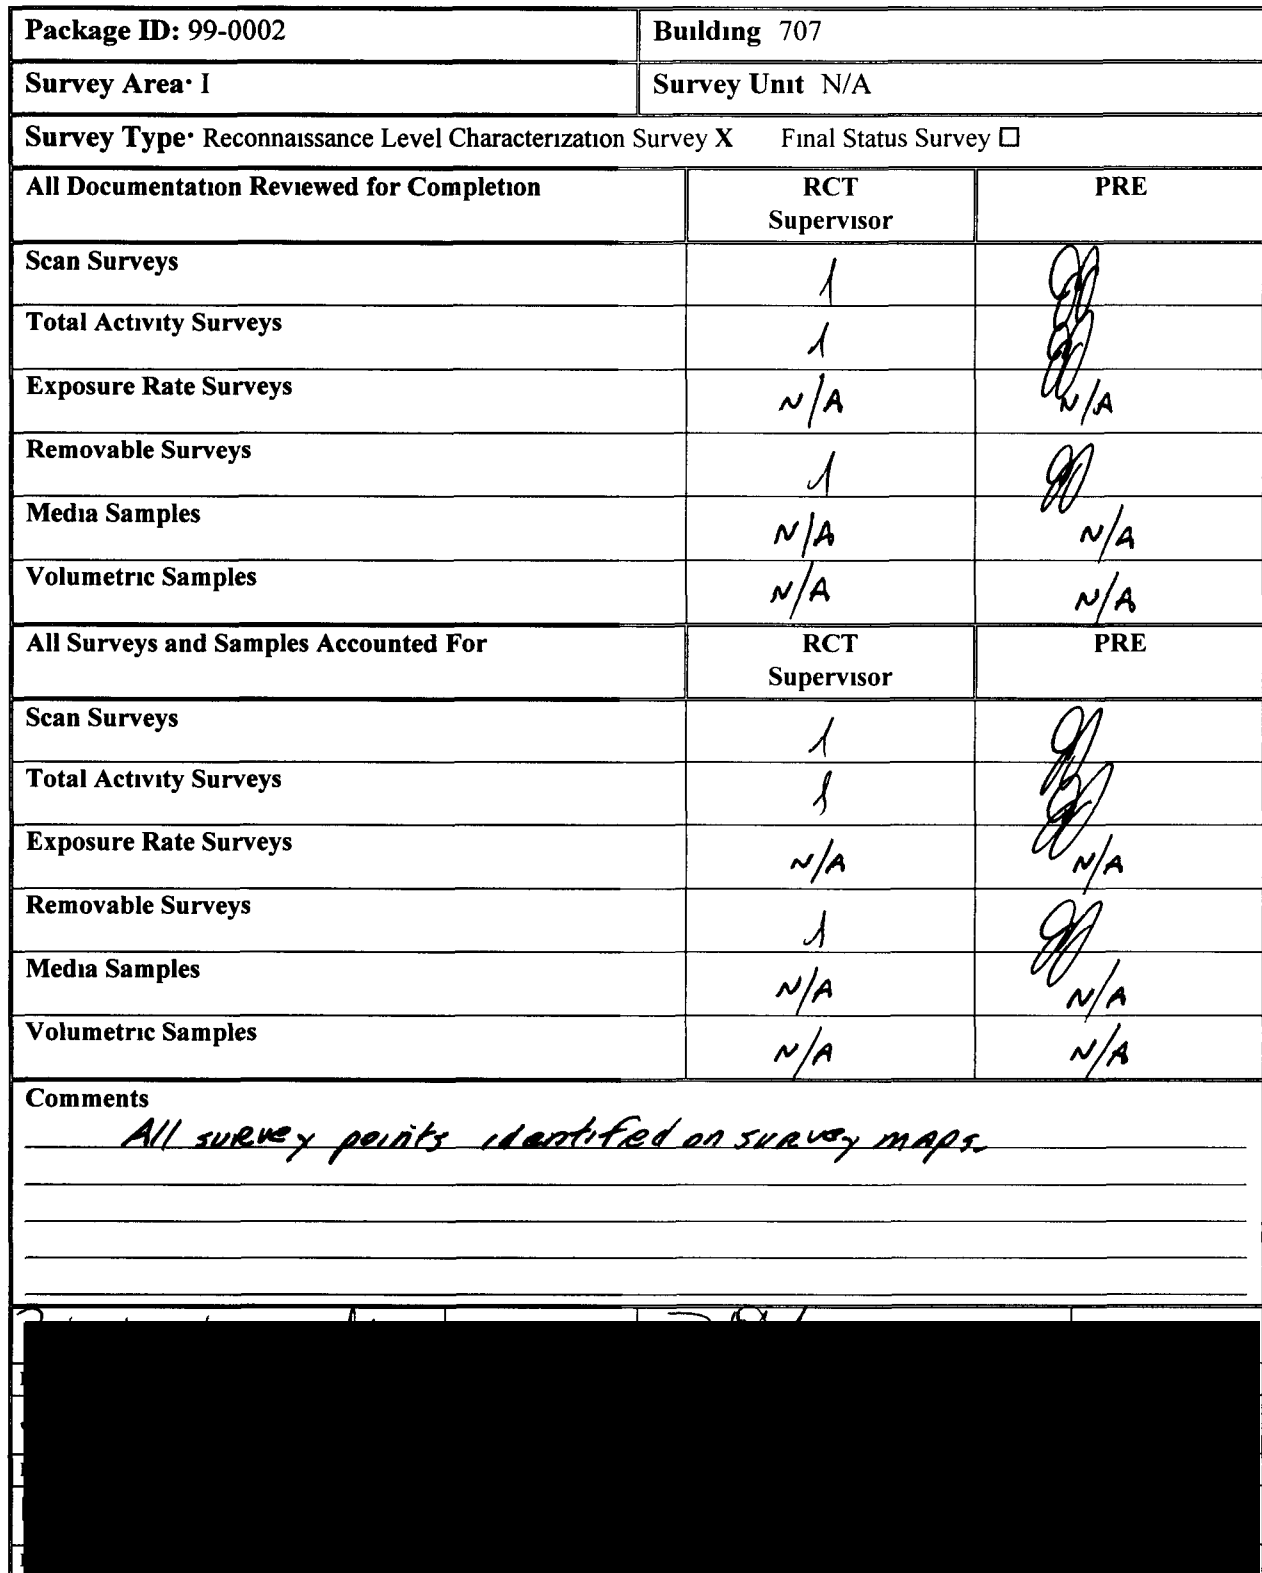 Package ID: 99-0002 Building 707
Survey Area· I Survey Unit N/A
Survey Type· Reconnaissance Level Characterization Survey X Final Status Survey ☐
All Documentation Reviewed for Completion RCT Supervisor PRE
Scan Surveys
Total Activity Surveys
Exposure Rate Surveys N/A N/A
Removable Surveys
Media Samples N/A N/A
Volumetric Samples N/A N/A
All Surveys and Samples Accounted For RCT Supervisor PRE
Scan Surveys
Total Activity Surveys
Exposure Rate Surveys N/A N/A
Removable Surveys
Media Samples N/A N/A
Volumetric Samples N/A N/A
Comments
All survey points identifed on survey maps.